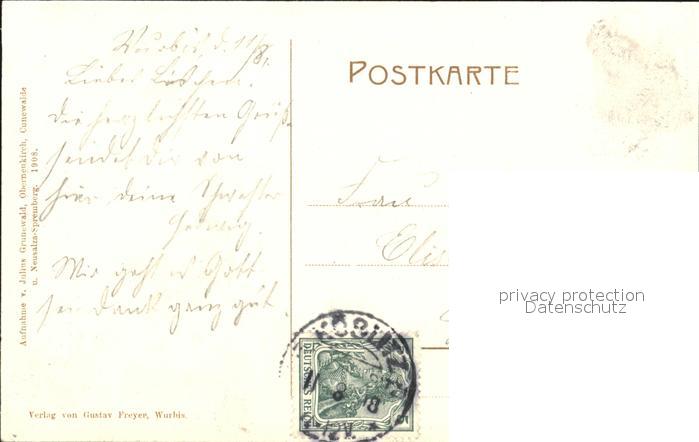 Wurbis, d. 11/8.
Liebes Lieschen.
Die herzlichsten Grüße
sendet Dir von
hier deine Schwester
Hedwig.
Wie geht es Gott
sei Dank ganz gut.
POSTKARTE
Frau
Elis
privacy protection
Datenschutz
DEUTSCHES REICH
5
Aufnahme v. Julius Grunewald, Oberneukirch, Cunewalde
u. Neusalza-Spremberg. 1908.
Verlag von Gustav Freyer, Wurbis.